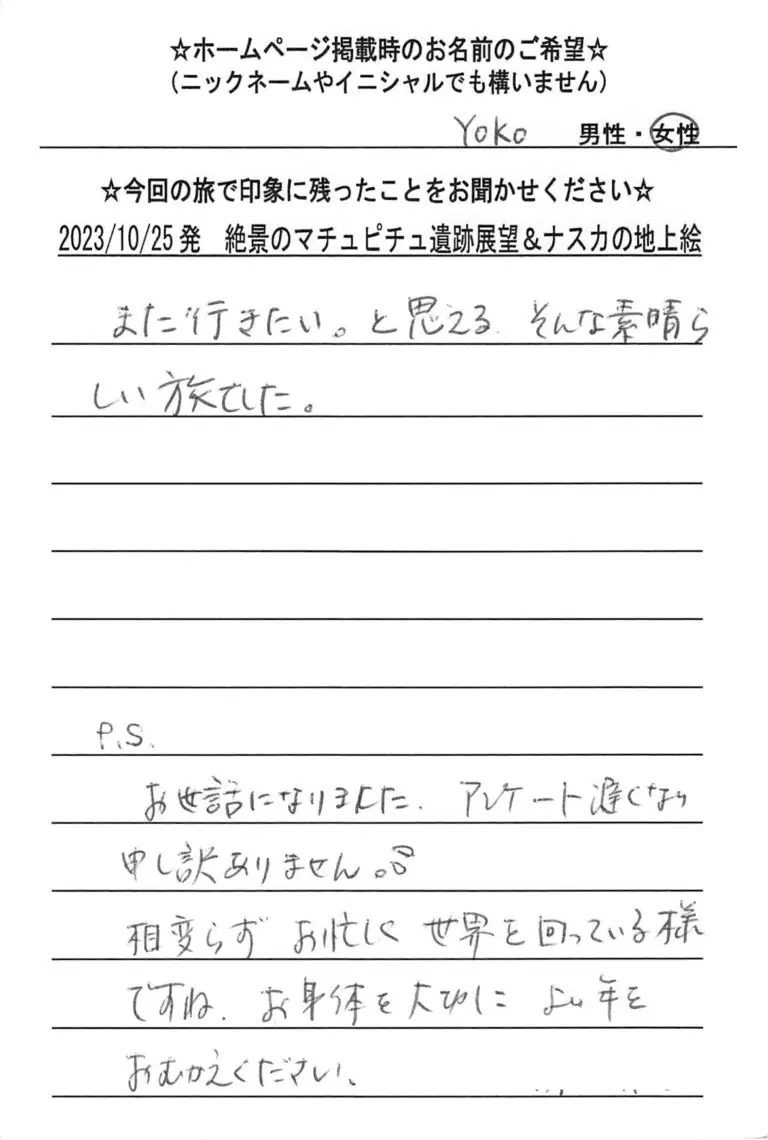 ☆ホームページ掲載時のお名前のご希望☆
(ニックネームやイニシャルでも構いません)
Yoko 男性・女性
☆今回の旅で印象に残ったことをお聞かせください☆
2023/10/25発 絶景のマチュピチュ遺跡展望&ナスカの地上絵
また行きたい。と思える そんな素晴ら
しい旅でした。
P.S.
お世話になりました. アンケート遅くなり
申し訳ありません。
相変らず お忙しく 世界を回っている様
ですね. お身体を大切に よい年を
おむかえください.